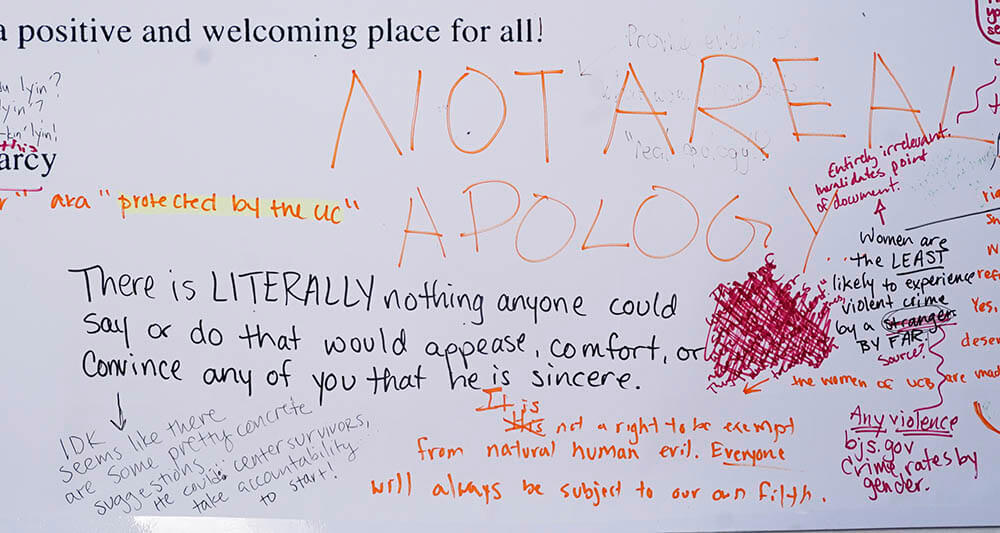 a positive and welcoming place for all!
lyin?
lyin'?
lyin!
this
arcy
NOT A REAL
APOLOGY
Provide evidence
"real apology?"
" aka "protected by the UC"
There is LITERALLY nothing anyone could
say or do that would appease, comfort, or
convince any of you that he is sincere.
IDK
seems like there
are some pretty concrete
suggestions...
He could: center survivors,
take accountability
to start!
It is
This is not a right to be exempt
from natural human evil. Everyone
will always be subject to our own filth.
the women of UCB are mad
Entirely irrelevant.
Invalidates point
of document.
Women are
the LEAST
likely to experience
violent crime
by a stranger
BY FAR.
source?
Any violence
bjs.gov
Crime rates by
gender.
Yes,